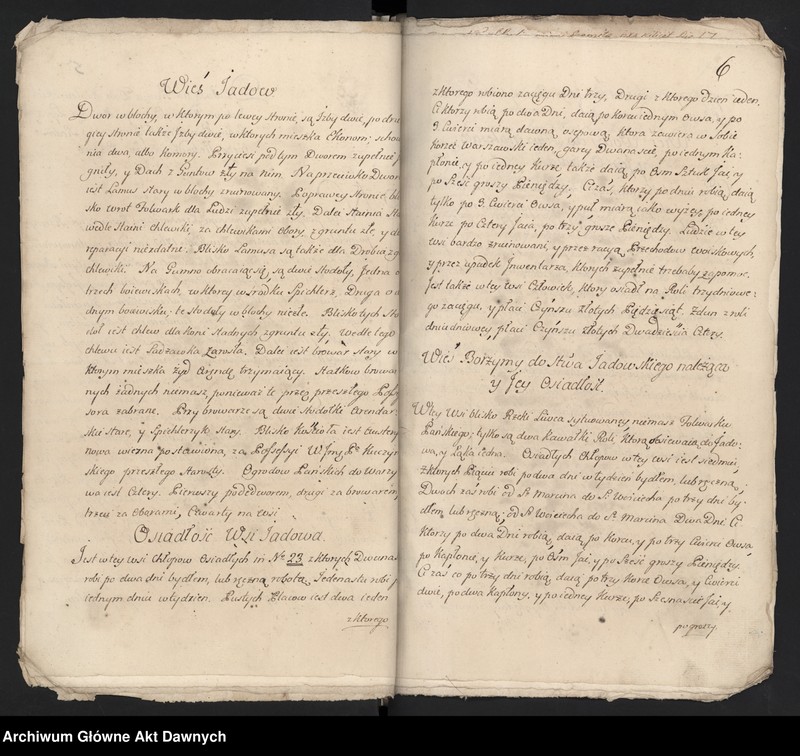 Wieś Jadow
Dwor w blochy, w ktorym po lewey stronie, są Izby dwie, po dru
giey stronie także Izby dwie, w ktorych mieszka Ekonom; schow
nia dwa, albo komory. Przyciesi pod tym Dworem zupełnie
gniły, y Dach z Guntow zły na nim. Naprzeciwko Dworu
iest Lamus stary w blochy zruinowany. Po prawey stronie, bli
sko wrot Folwark dla Ludzi zupełnie zły. Daley Stainia
wedle Staini chlewiki, za chlewikami obory z gruntu złe, y do
reparacyi niezdatne. Blisko Lamusa są także dla Drobiazgu
chlewiki. Na Gumno obracaiąc się, są dwie Stodoły, Jedna o
trzech boiewiskach, w ktorey w środku Spichlerz, Druga o ie
dnym boiewisku; te Stodoły w blochy niezłe. Blisko tych Sto
doł iest chlew dla koni stadnych z gruntu zły. Wedle tego
chlewu iest Sadzawka zarosła. Daley iest browar stary w
ktorym mieszka żyd Arendę trzymaiący. Statkow browar
nych żadnych niemasz, ponieważ te przez przeszłego Posse
sora zabrane. Przy browarze są dwie Stodołki Arendar
skie stare, y Spichlerzyk stary. Blisko Kościoła iest
nowa wiezna postawiona, za Possessyi W Jmć Pa Kuczyn
skiego przeszłego Starosty. Ogrodow Pańskich do Warzy
wa iest Cztery. Pierwszy pode dworem, drugi za browarem,
trzeci za Oborami, Czwarty na wsi
Osiadłość Wsi Jadowa
Jest w tey wsi Chłopow Osiadłych in No 23 z ktorych Dwunastu
robi po dwa dni bydłem, lub ręczną robotą, Jedenastu robi po
iednym dniu w tydzien. Pustych Placow iest dwa ieden
z ktorego
6
z ktorego robiono zaciągu Dni trzy, Drugi z ktorego dzien ieden,
Ci ktorzy robią po dwa Dni, daią po korcu iednym Owsa, y po
3. Cwierci miarą dawną, osepową, ktora zawiera w Sobie
korzec Warszawski ieden, garcy Dwanascie, po iednym Ka
płonie, y po iedney Kurze, także daią po Ośm Sztuk Jaj, y
po Sześć groszy Pieniędzy. Ci zaś, ktorzy po dniu robią, daią
tylko po 3. Cwierci Owsa, y puł miarą iako wyżey, po iedney
Kurze po Cztery Jaia, po trzy grosze Pieniędzy. Ludzie w tey
wsi bardzo zruinowani, y przez racyą Przechodow woiskowych,
y przez upadek Inwentarza, ktorych zupełnie trzebaby zapomoc.
Jest także w tey wsi Człowiek, ktory osiadł na Roli trzydniowe
go zaciągu, y płaci Czynszu złotych Pięćdziesiąt. Zdun z roli
dniudniowey, płaci Czynszu złotych Dwadzieścia Cztery.
Wieś Borzymy do Stwa Jadowskiego należąca
y Jey Osiadłość
W tey wsi blisko Rzeki Liwca sytuowaney niemasz Folwarku
Pańskiego; tylko są dwa kawałki Roli, ktorą Posiewaią do Jado
wa, y Łąka iedna. Osiadłych Chłopow w tey wsi iest siedmiu,
z ktorych Pięciu robi po dwa dni w tydzień bydłem, lub ręczną;
Dwoch zaś robi od St Marcina do St Woyciecha po trzy dni by
dłem, lub ręczną; od St Woyciecha do St Marcina Dwa Dni. Ci
ktorzy po dwa Dni robią, daią, po korcu, y po trzy Cwierci Owsa,
po Kapłonie, y Kurze, po Ośm Jaj, y po Sześć groszy Pieniędzy.
Ci zaś co po trzy dni robią, daią po trzy Korce Owsa, y Cwierci
dwie, po dwa kapłony, y po iedney Kurze, po Szesnaście Jaj, y
po groszy
Archiwum Główne Akt Dawnych